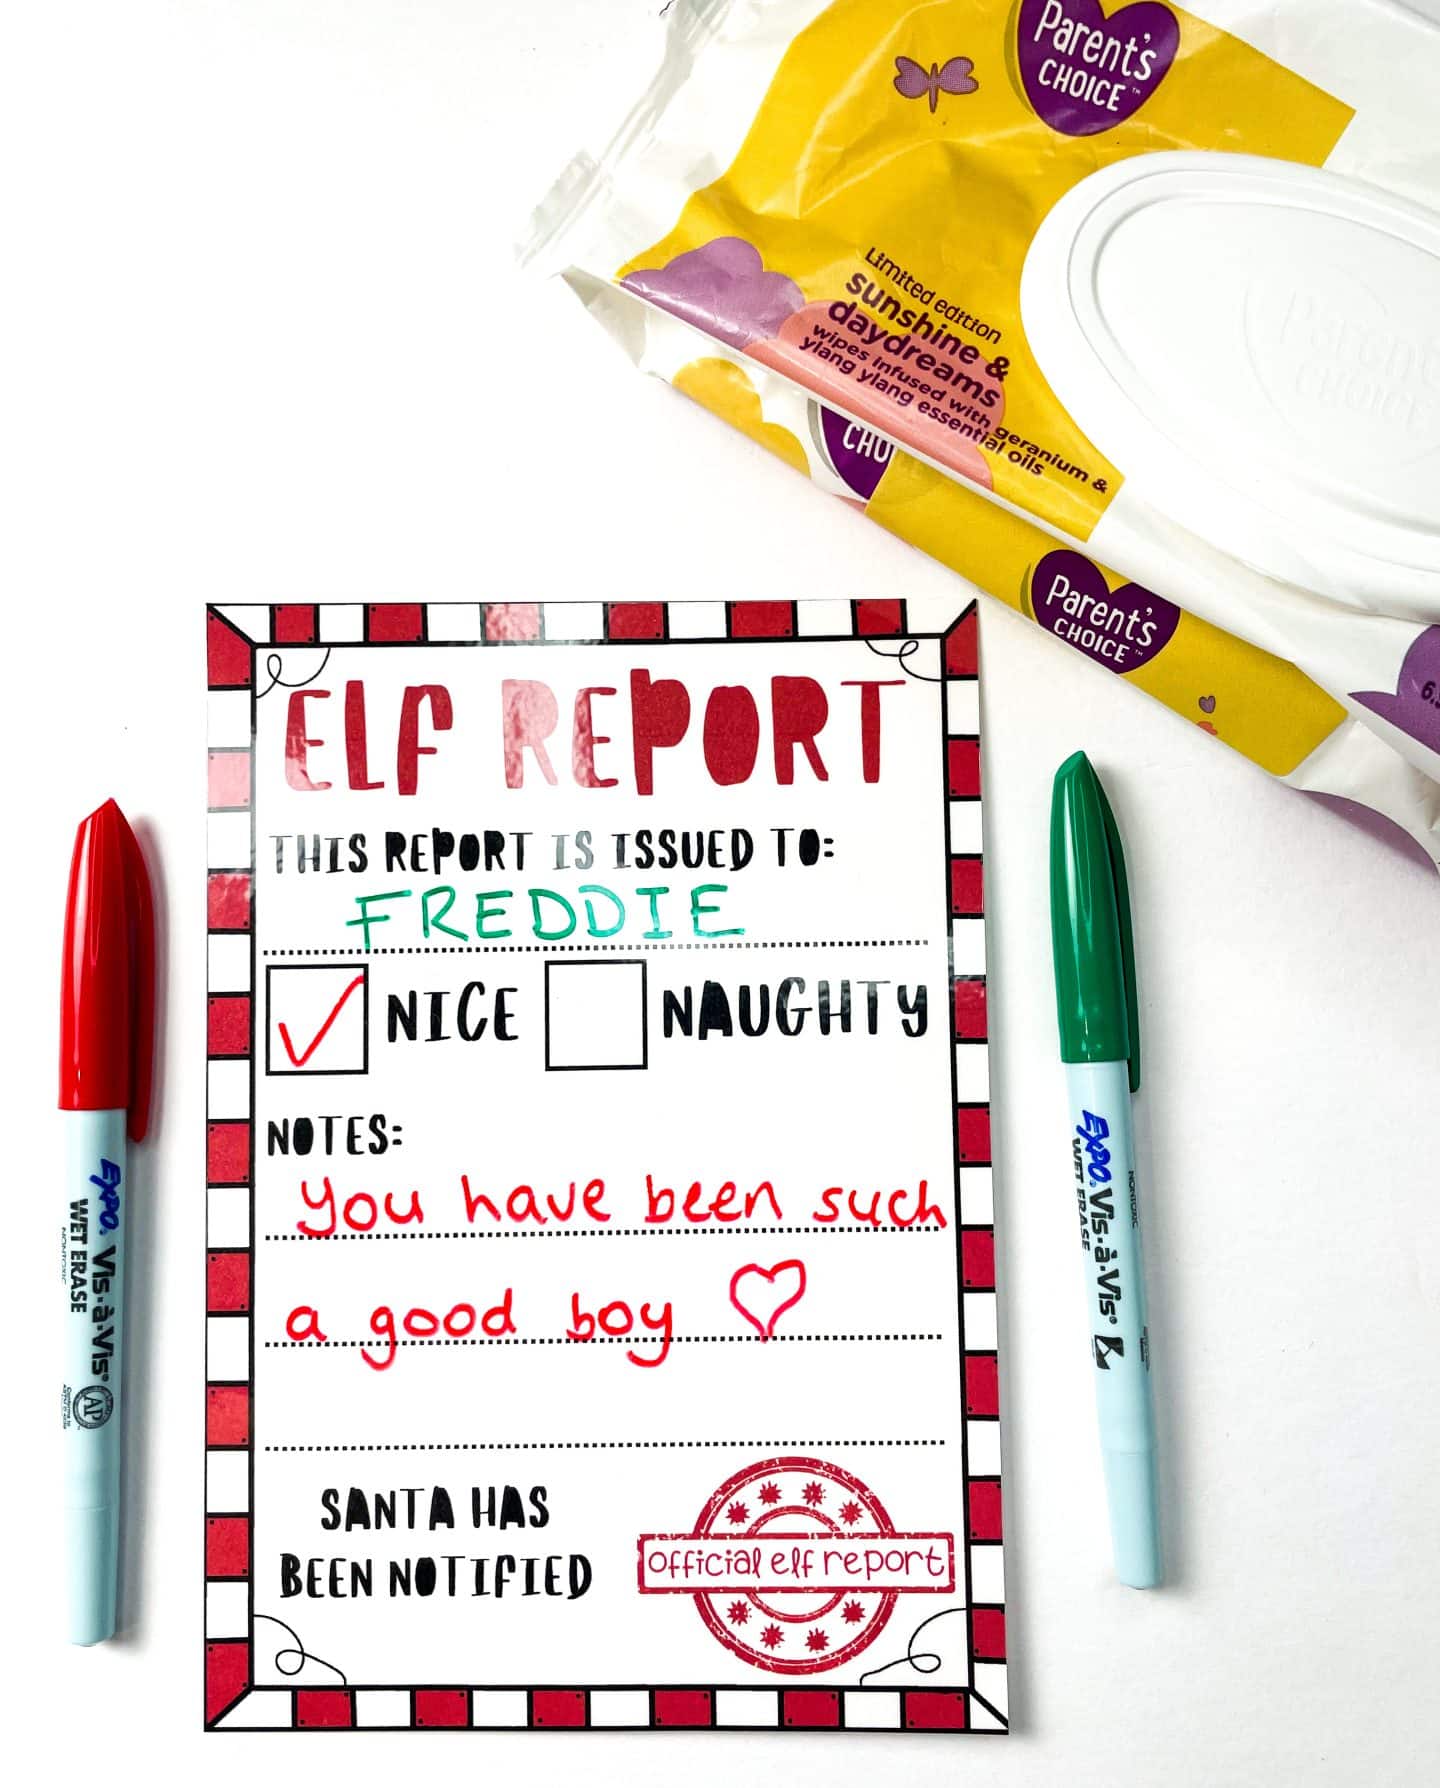 Parent's
CHOICE™
Limited edition
sunshine &
daydreams
wipes infused with geranium &
ylang ylang essential oils
CHO
Parent's
CHOICE™
ELF REPORT
THIS REPORT IS ISSUED TO:
FREDDIE
NICE NAUGHTY
NOTES:
You have been such
a good boy
SANTA HAS
BEEN NOTIFIED
official elf report
EXPO® Vis·à·Vis®
WET ERASE
NONTOXIC
AP
EXPO® Vis·à·Vis®
WET ERASE
NONTOXIC